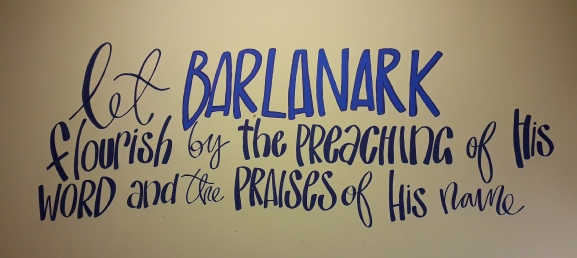 let BARLANARK
flourish by the PREACHING of His
WORD and the PRAISES of His name